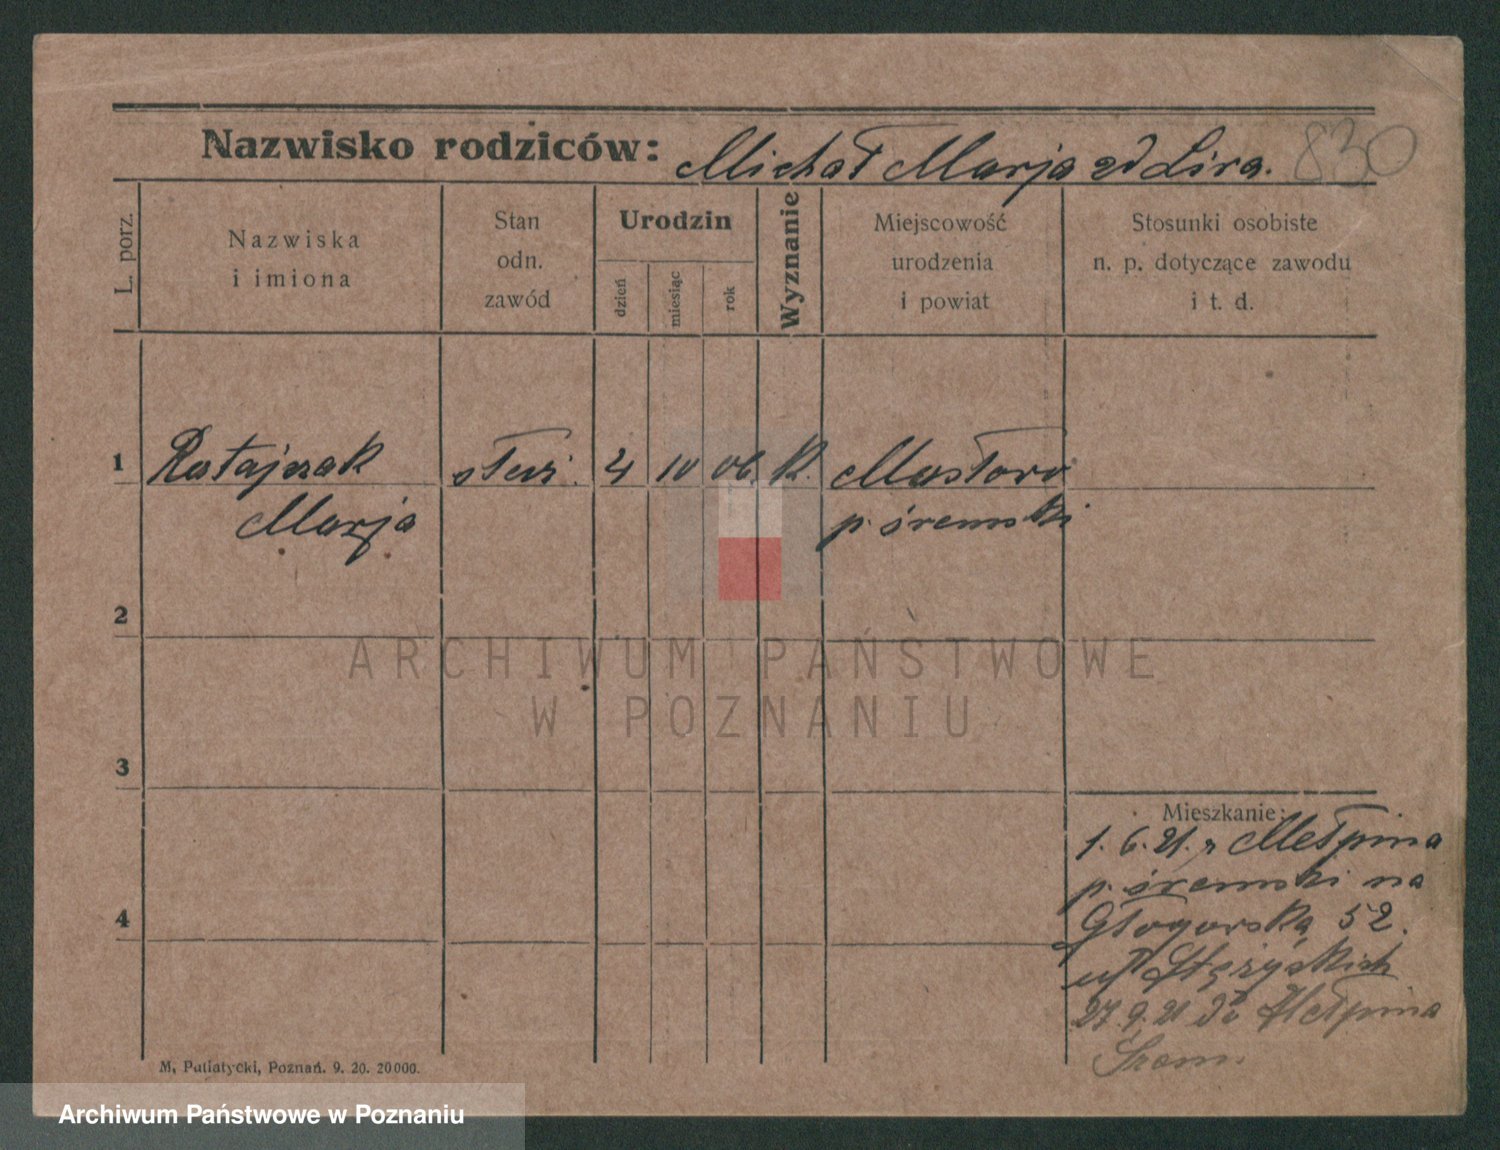 Nazwisko rodziców: Michał Marja zd Lira. 830
L. porz.
Nazwiska
i imiona
Stan
odn.
zawód
Urodzin
dzień
miesiąc
rok
Wyznanie
Miejscowość
urodzenia
i powiat
Stosunki osobiste
n. p. dotyczące zawodu
i t. d.
1 Ratajczak 4 10 06. K. Mastowo
Marja p. śremski
2
3
4
Mieszkanie:
1. 6. 21. z Mełpina
p. śremski na
Głogowską 52.
27. 9. 21 do Mełpina
Śrem.
M. Putiatycki, Poznań. 9. 20. 20000.
ARCHIWUM PAŃSTWOWE
W POZNANIU
Archiwum Państwowe w Poznaniu